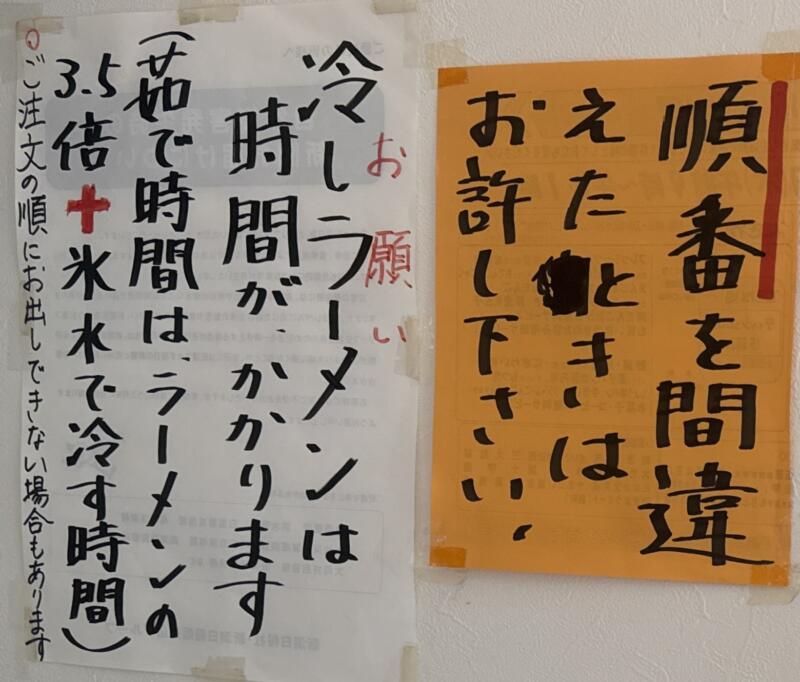 順番を間違
えたときは
お許し下さい、
お願い
冷しラーメンは
時間が、かかります
(茹で時間は、ラーメンの
3.5倍+氷水で冷す時間)
○ご注文の順にお出しできない場合もあります